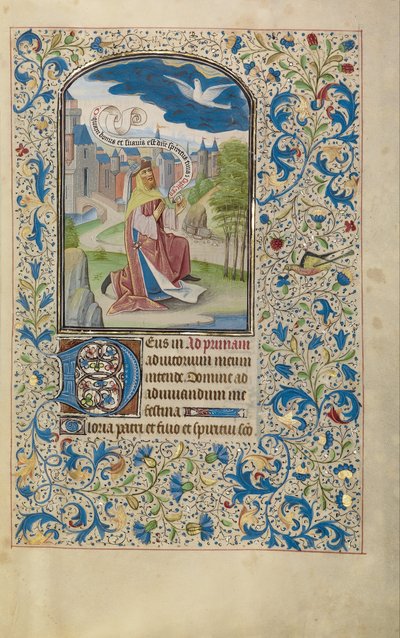 O quam bonus et suavis est dne spiritus tuus
Deus in Ad primam
adiutorium meum
intende Domine ad
adiuvandum me
festina
Gloria patri et filio et spiritui sco